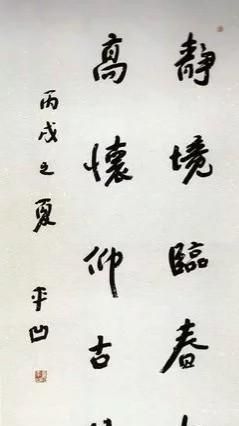 靜境臨春
高懷仰古
丙戌之夏 平凹